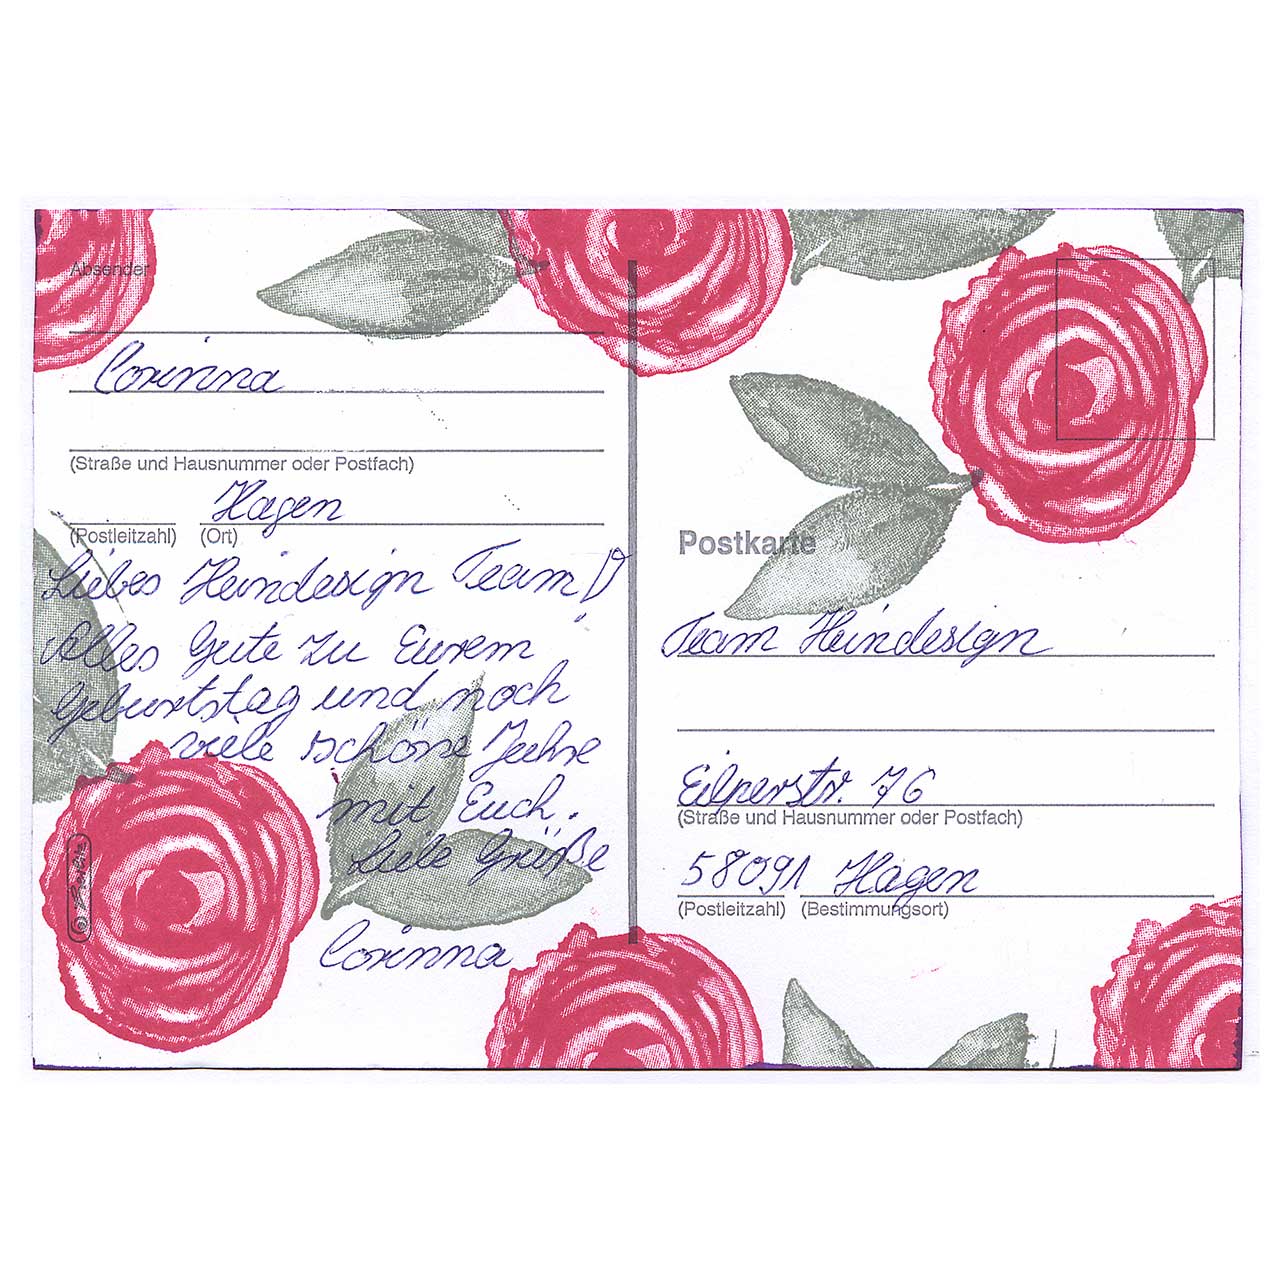 Absender
Corinna
(Straße und Hausnummer oder Postfach)
Hagen
(Postleitzahl) (Ort)
Liebes Heindesign Team!
Alles Gute zu Eurem
Geburtstag und noch
viele schöne Jahre
mit Euch.
Liebe Grüße
Corinna
Postkarte
Team Heindesign
Eilperstr. 76
(Straße und Hausnummer oder Postfach)
58091 Hagen
(Postleitzahl) (Bestimmungsort)